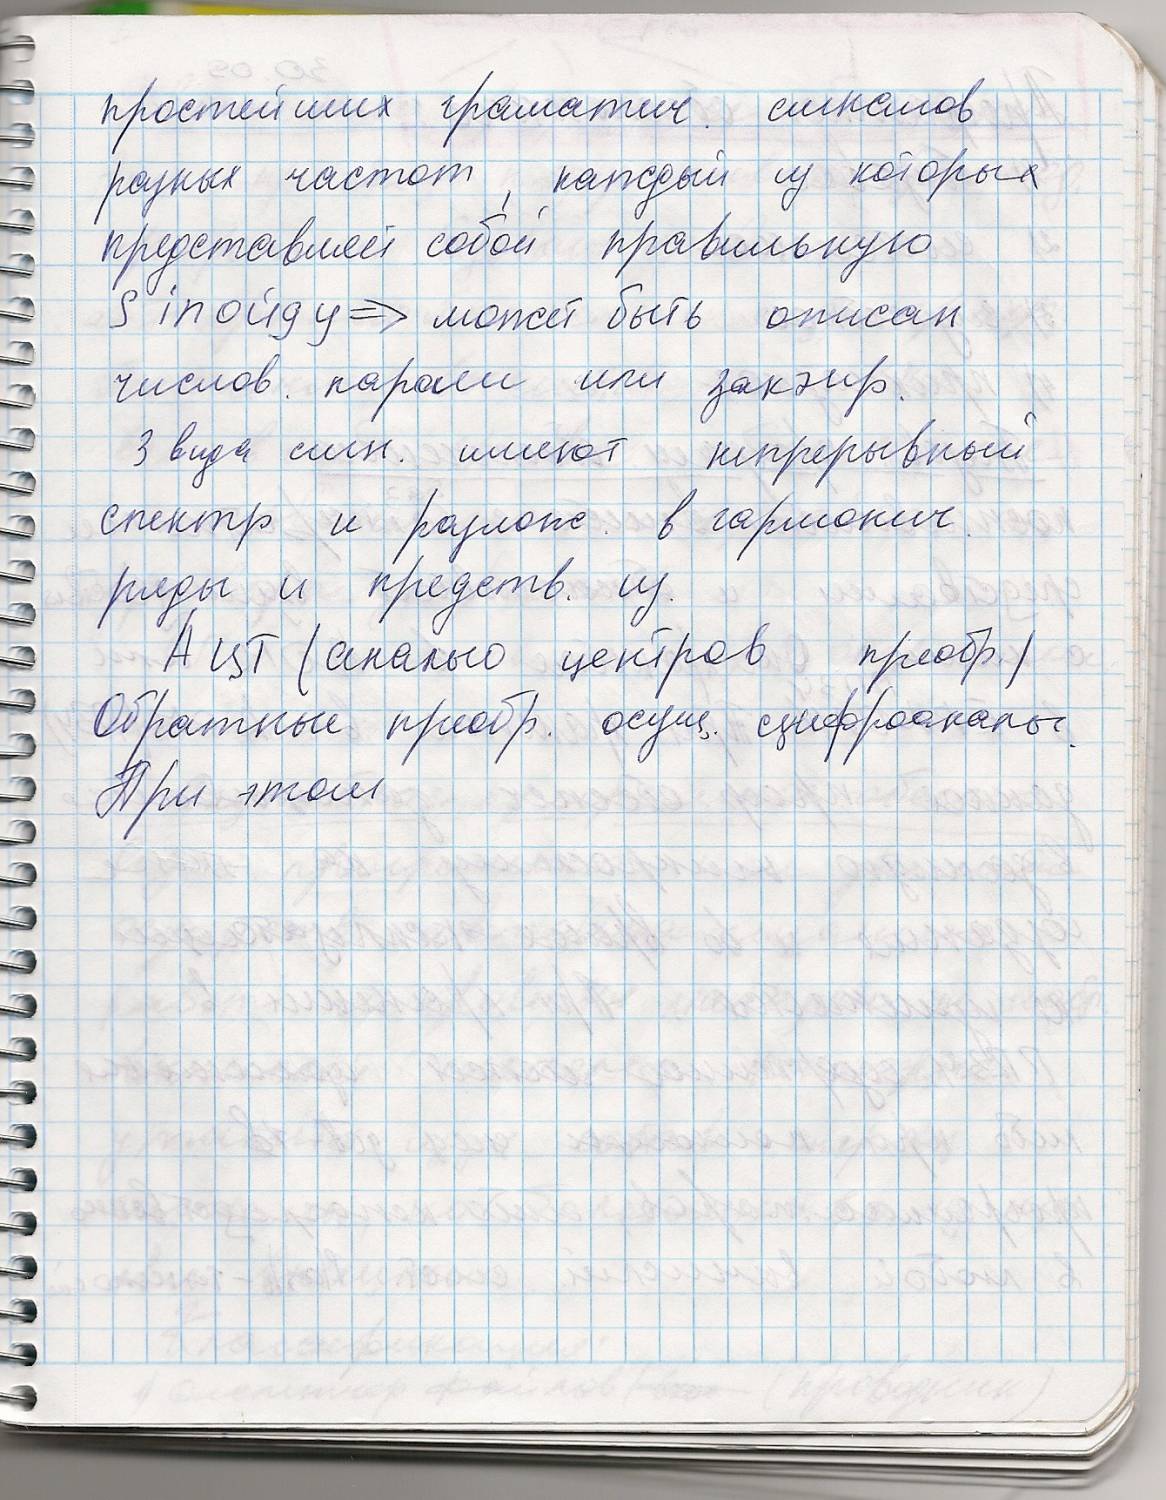 простейших граматич. сигналов
разных частот, каждый из которых
представляет собой правильную
Sinойду => может быть описан
числов. парами или
3 вида сигн. имеют непрерывный
спектр и разлож. в гармонич.
ряды и предств. из.
АЦТ (анально центров преобр.)
Обратные преобр. осущ. сцифроаналы.
При этом